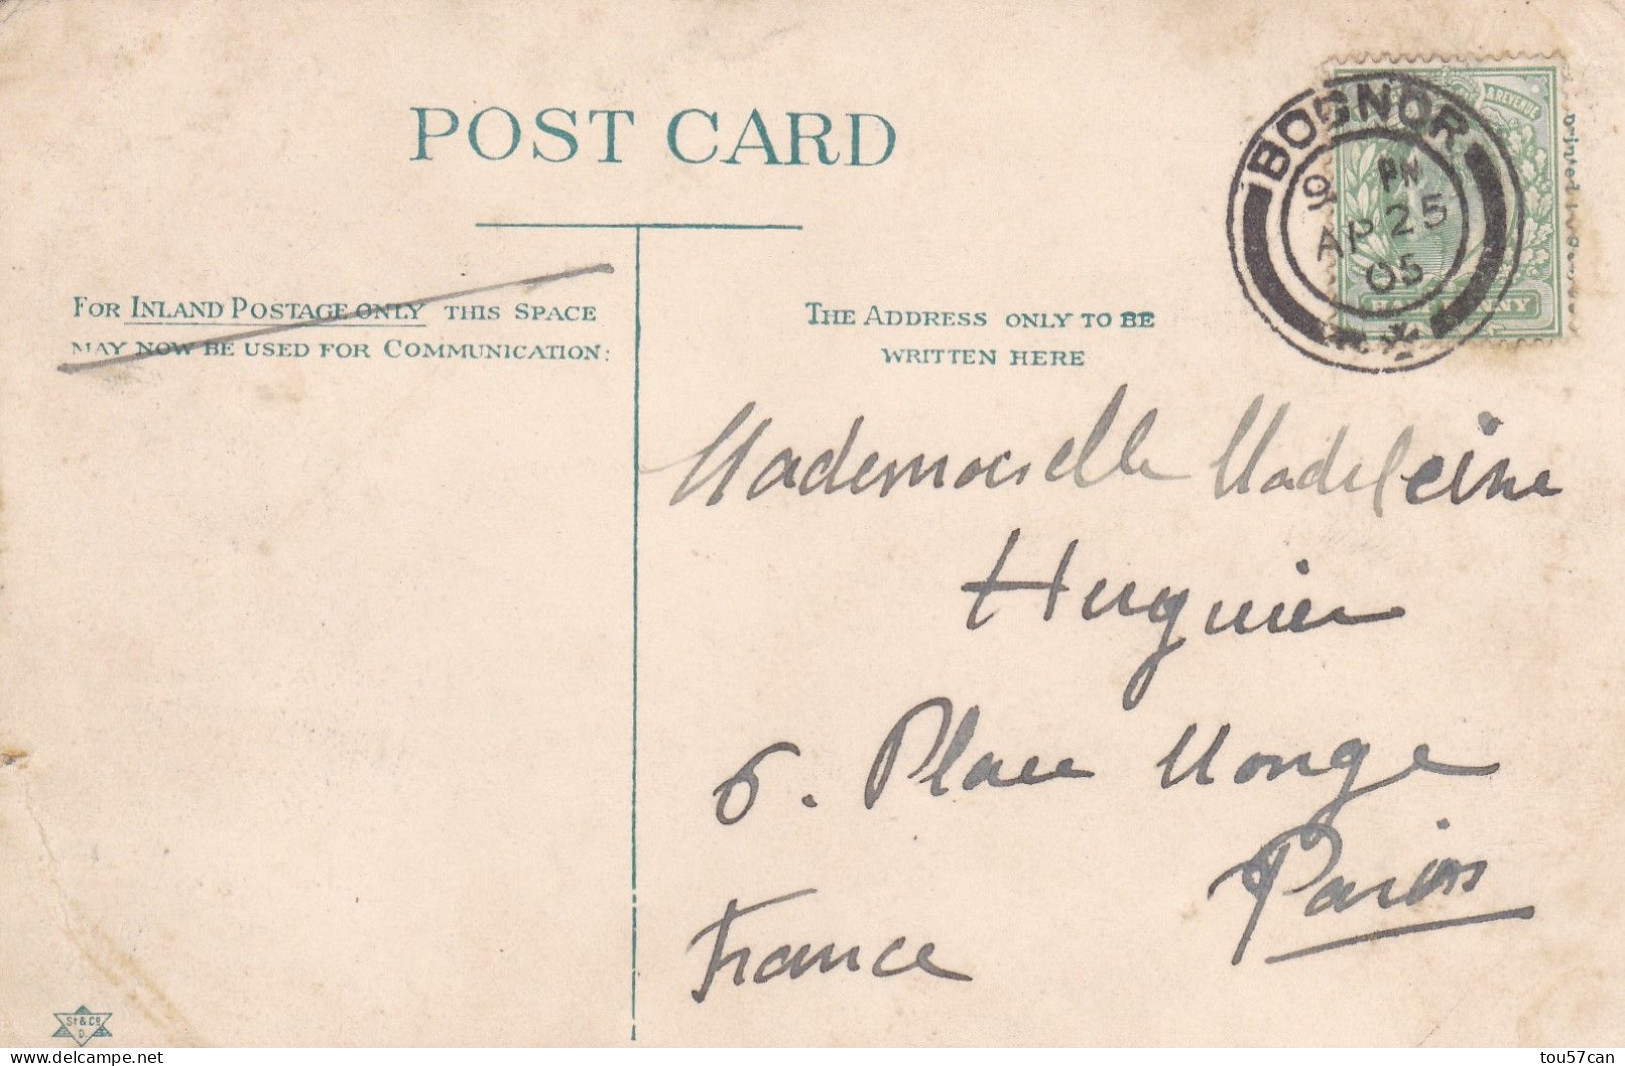 POST CARD
FOR INLAND POSTAGE ONLY THIS SPACE
MAY NOW BE USED FOR COMMUNICATION:
THE ADDRESS ONLY TO BE
WRITTEN HERE
BOGNOR
PM
AP 25
05
& REVENUE
HALFPENNY
Mademoiselle Madeleine
Huguier
6. Place Monge
Paris
France
St & Co
D.
delcampe.net
tou57can